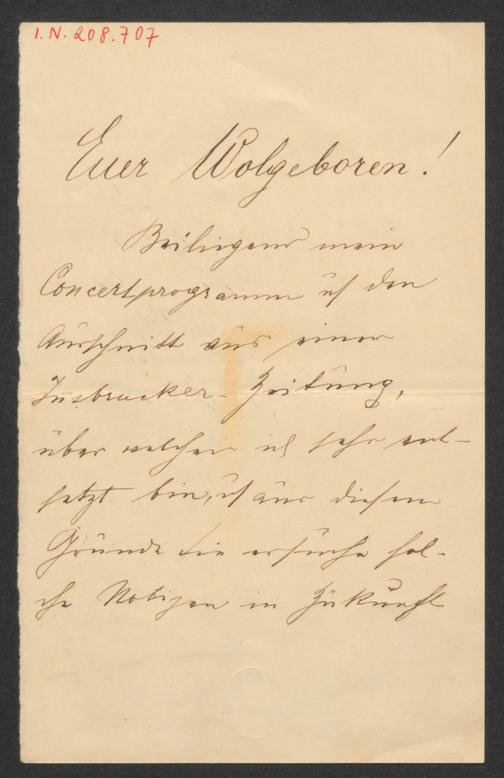 I.N. 208.707
Euer Wolgeboren!
Beiliegend mein
Concertprogramm u den
Ausschnitt aus einer
Insbrucker-Zeitung,
über welchen ich sehr ent-
setzt bin, u aus diesem
Grunde Sie ersuche sol-
che Notizen in Zukunft